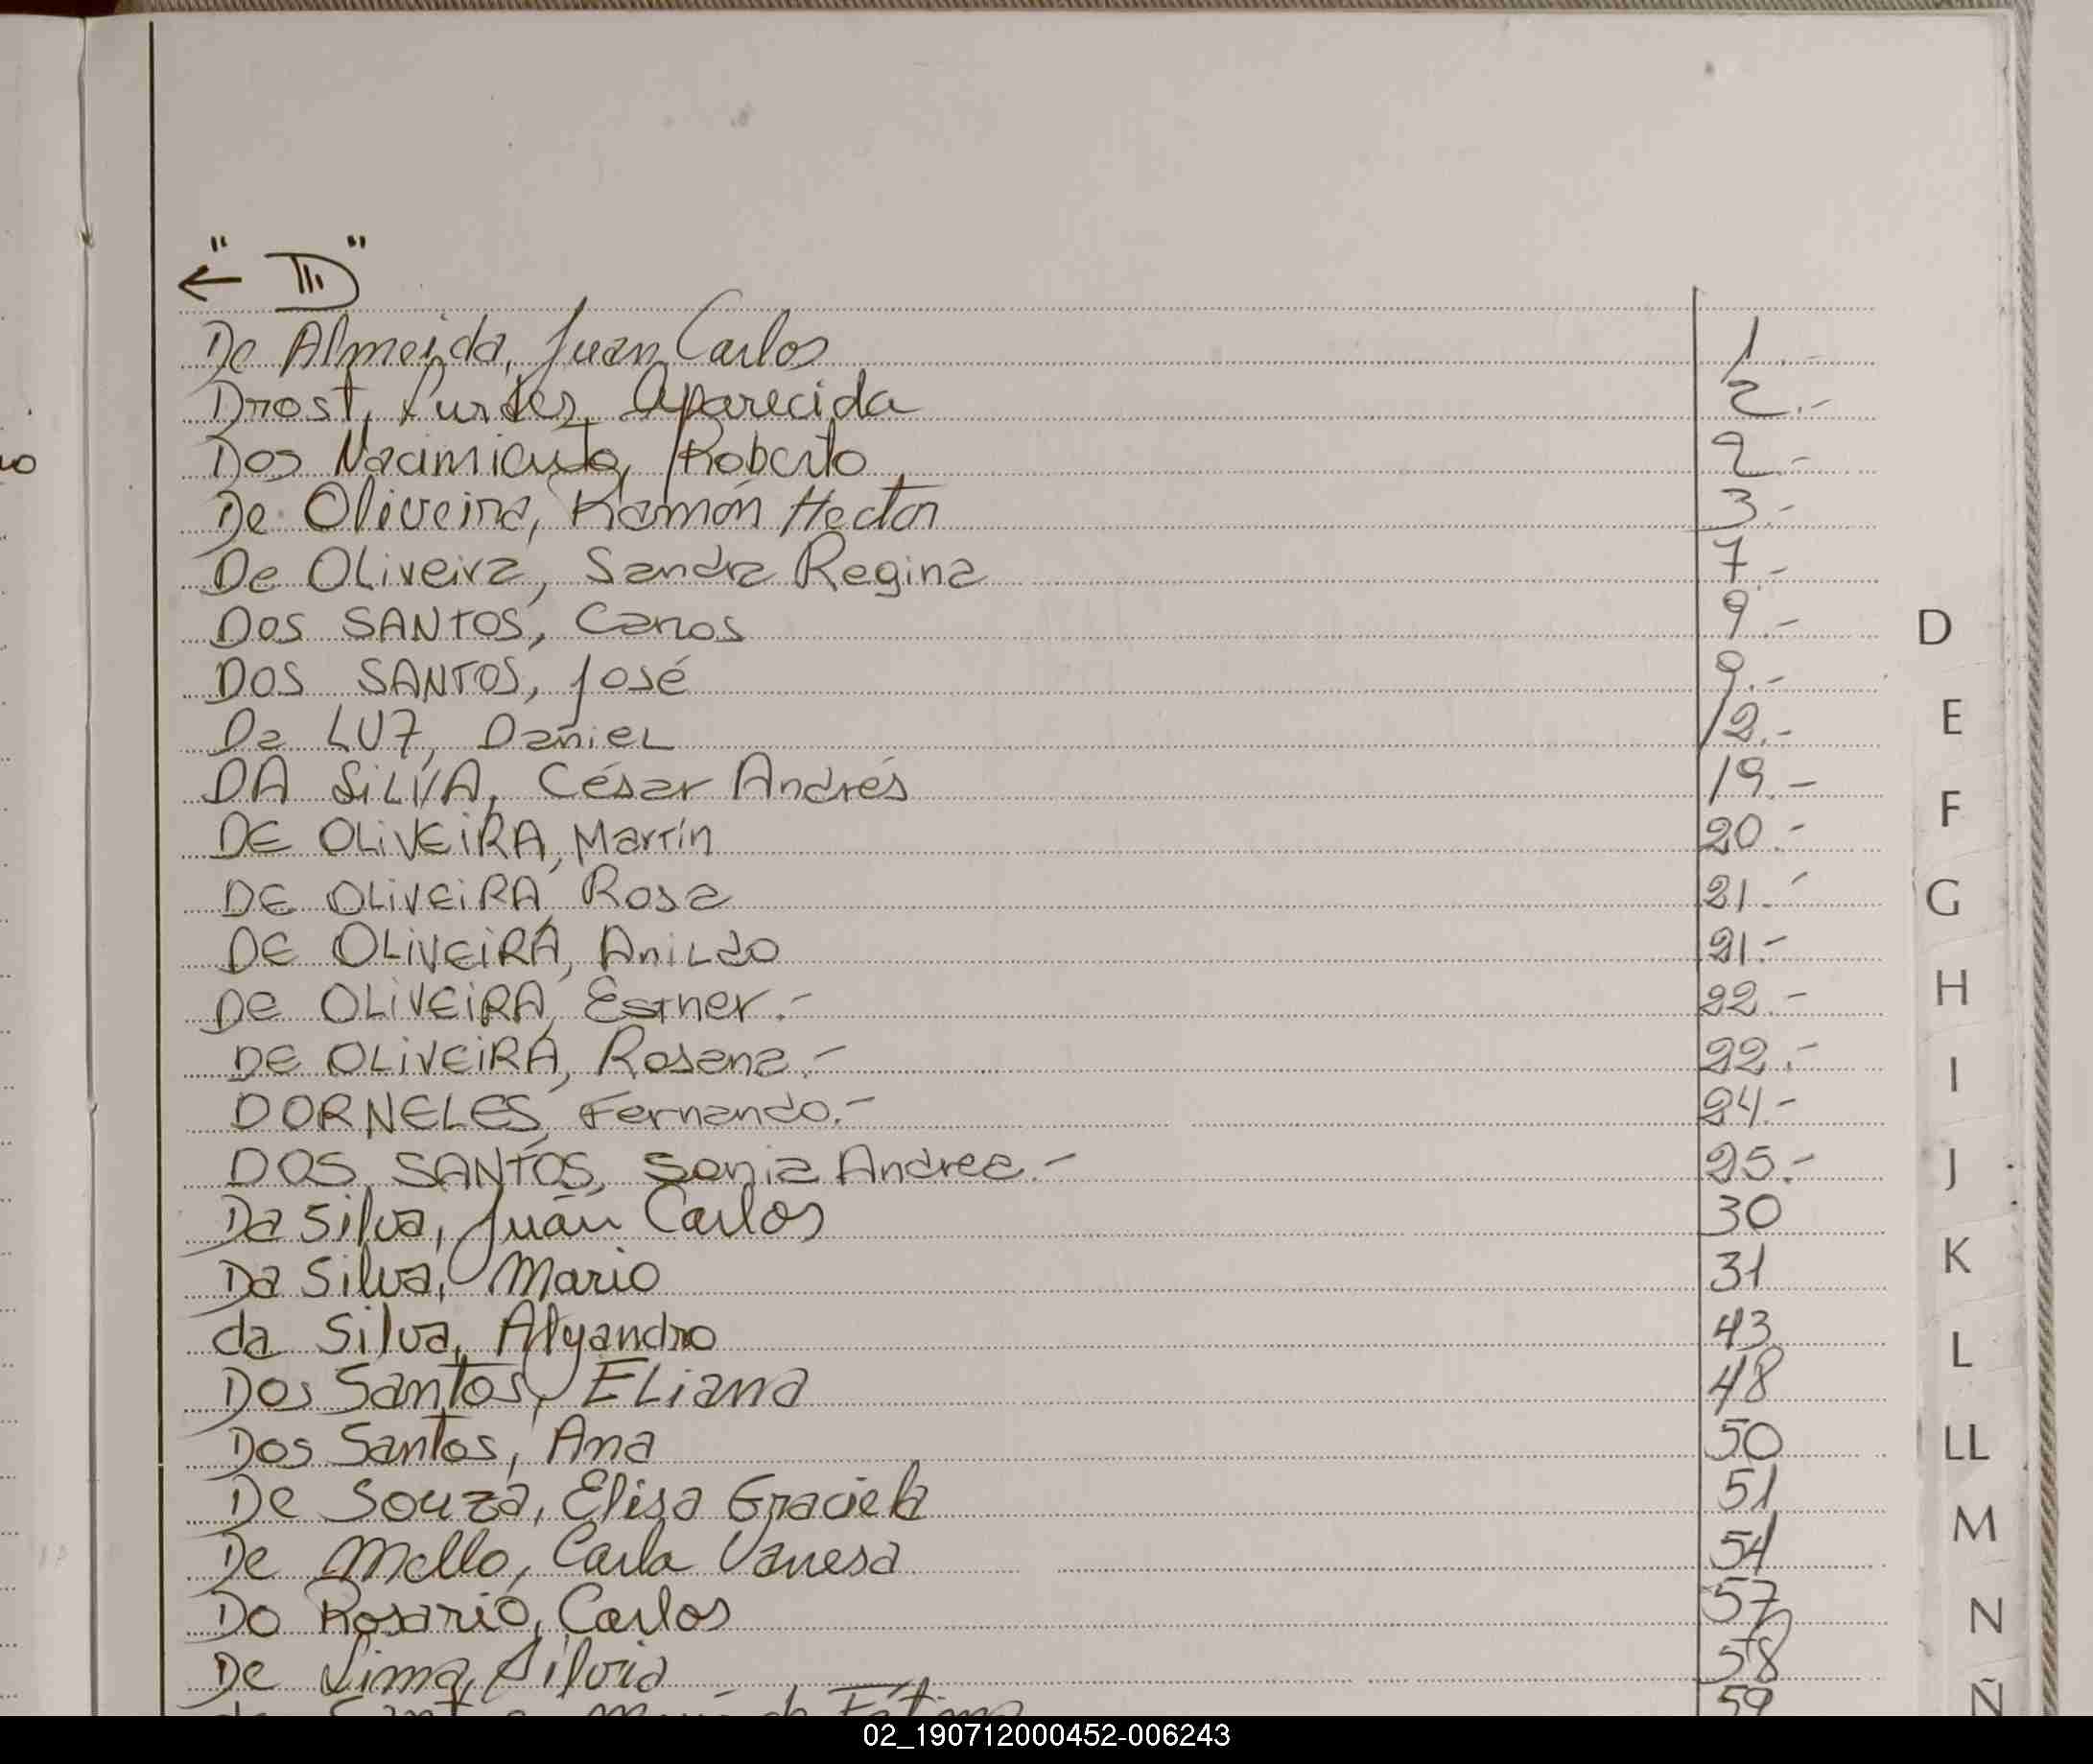 ← "D"
De Almeida, Juan Carlos 1.-
Drost, Lurdes Aparecida 2.-
Dos Nacimiento, Roberto 2.-
De Oliveira, Ramón Hector 3.-
De OLiveira, Sandra Regina 7.-
Dos SANTOS, Carlos 9.-
DOS SANTOS, José 9.-
Da LUZ, Daniel 12.-
DA SiLVA, César Andrés 19.-
DE OLiVEiRA, Martín 20.-
DE OLiVEiRA, Rosa 21.-
DE OLiVEiRA, AniLdo 21.-
De OLiVEiRA, Esther.- 22.-
DE OLiVEiRA, Rosana.- 22.-
DORNELES, Fernando.- 24.-
DOS SANTOS, Sonia Andrea.- 25.-
Da Silva, Juan Carlos 30
Da Silva, Mario 31
da Silva, Alejandro 43
Dos Santos, ELiana 48
Dos Santos, Ana 50
De Souza, Elisa Graciela 51
De Mello, Carla Vanesa 54
Do Rosario, Carlos 57
De Lima, Silvia 58
59
D
E
F
G
H
I
J
K
L
LL
M
N
Ñ
02_190712000452-006243